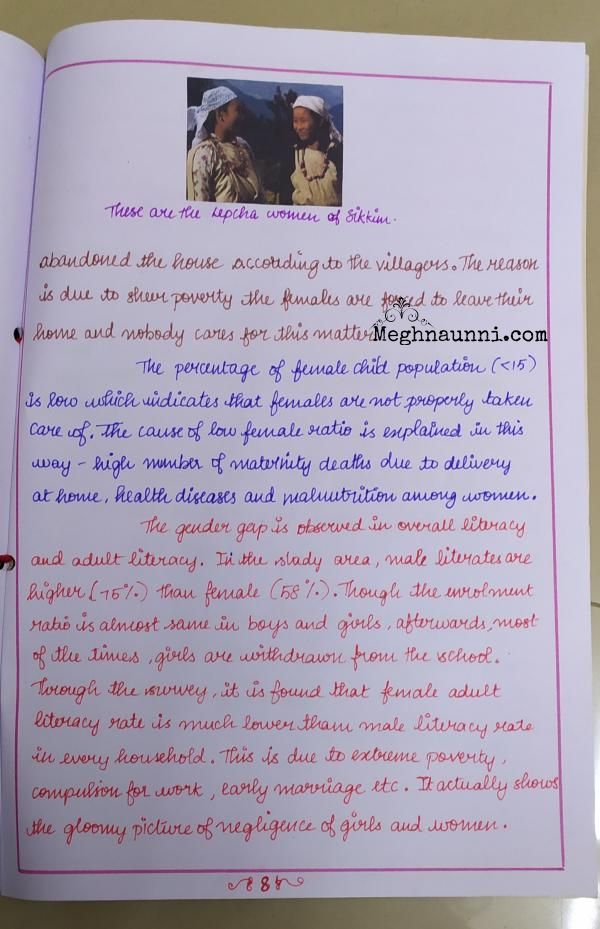 These are the Lepcha women of Sikkim.
abandoned the house according to the villagers. The reason
is due to sheer poverty the females are forced to leave their
home and nobody cares for this matter
Meghnaunni.com
The percentage of female child population (<15)
is low which indicates that females are not properly taken
care of. The cause of low female ratio is explained in this
way - high number of maternity deaths due to delivery
at home, health diseases and malnutrition among women.
The gender gap is observed in overall literacy
and adult literacy. In the study area, male literates are
higher (75%) than female (58%). Though the enrolment
ratio is almost same in boys and girls, afterwards, most
of the times, girls are withdrawn from the school.
Through the survey, it is found that female adult
literacy rate is much lower than male literacy rate
in every household. This is due to extreme poverty,
compulsion for work, early marriage etc. It actually shows
the gloomy picture of negligence of girls and women.
8